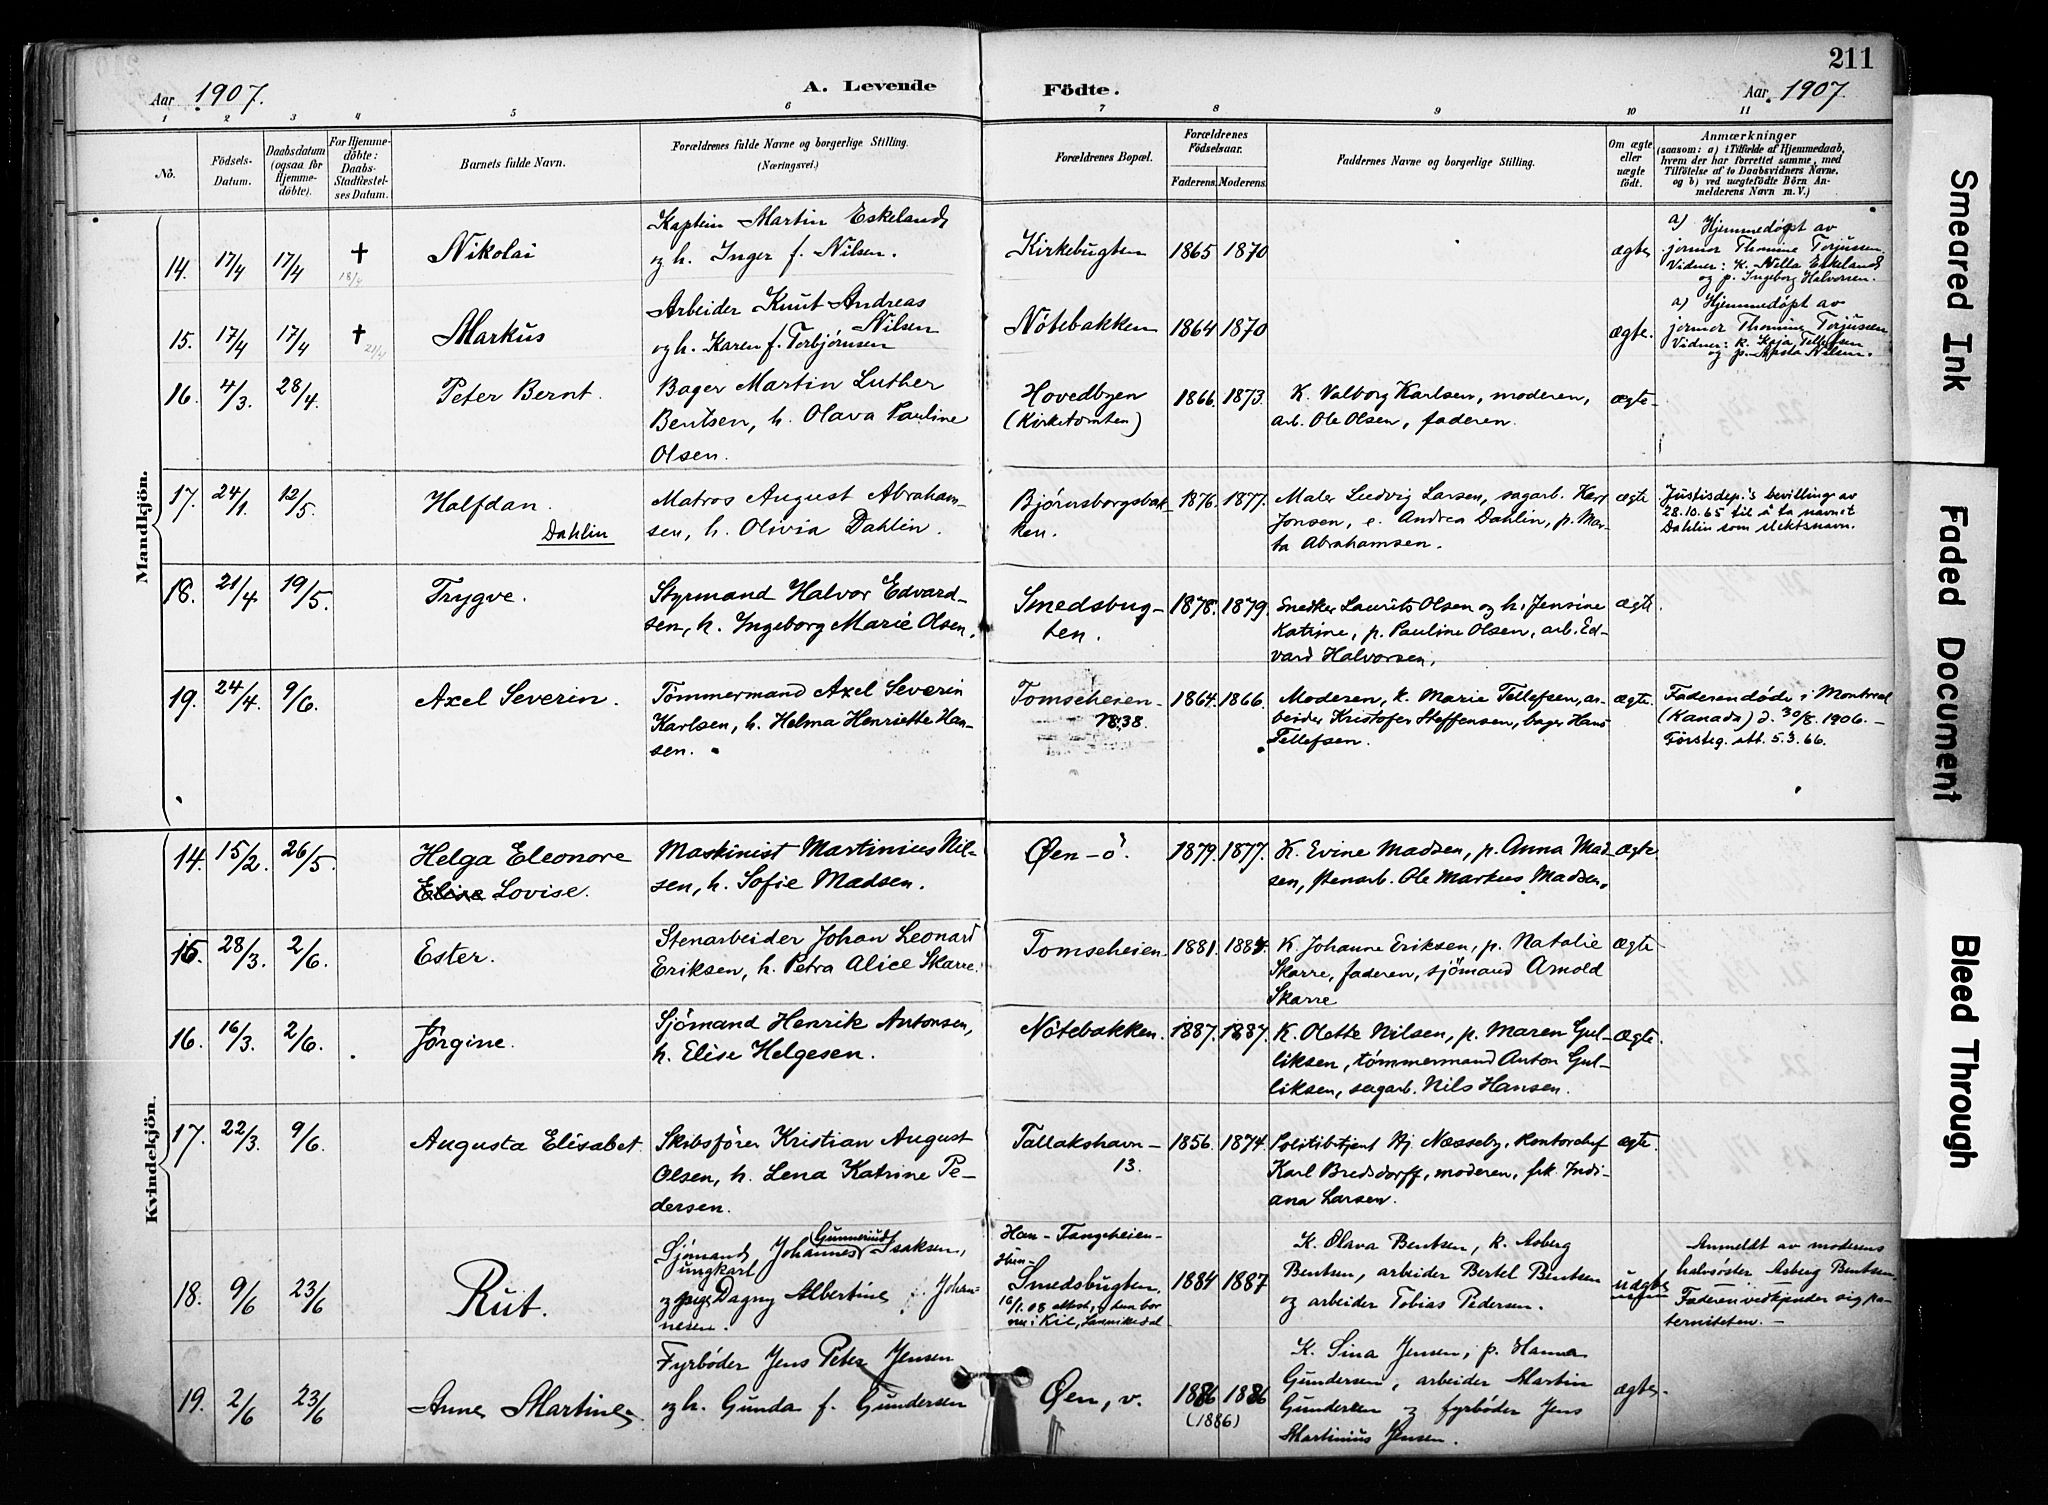 211
Aar 1907.
A. Levende Födte.
Aar 1907.
1 2 3 4 5 6 7 8 9 10 11
No.
Födsels-
Datum.
Daabsdatum
(ogsaa for
Hjemme-
döbte).
For Hjemme-
döbte:
Daabs-
Stadfæstel-
ses Datum.
Barnets fulde Navn.
Forældrenes fulde Navne og borgerlige Stilling.
(Næringsvei.)
Forældrenes Bopæl.
Forældrenes
Födselsaar.
Faderens. Moderens.
Faddernes Navne og borgerlige Stilling.
Om ægte
eller
uægte
født.
Anmærkninger
(saasom: a) i Tilfælde af Hjemmedaab,
hvem der har forrettet samme, med
Tilföielse af to Daabsvidners Navne,
og b) ved uægtefödte Börn An-
melderens Navn m. V.)
Mandkjön.
14. 17/4 17/4 † 18/4 Nikolai
Kaptein Martin Eskeland
og h. Inger f. Nilsen.
Kirkebugten 1865 1870
ægte
a) Hjemmedøpt av
jormor Thomine Torjussen
Vidner: k. Nilla Eskeland
og p. Ingeborg Halvorsen.
15. 17/4 17/4 † 21/4 Markus
Arbeider Knut Andreas
Nilsen
og h. Karen f. Torbjørnsen
Nötebakken 1864 1870
ægte.
a) Hjemmedøpt av
jormor Thomine Torjussen
Vidner: k. Kaja Tellefsen
og p. Nilsen.
16. 4/3. 28/4. Peter Bernt.
Bager Martin Luther
Bentsen, h. Olava Pauline
Olsen.
Hovedbyen
(Kirketomten)
1866. 1873.
K. Valborg Karlsen, moderen,
arb. Ole Olsen, faderen.
ægte
17. 24/1. 12/5. Halfdan.
Dahlin
Matros August Abraham-
sen, h. Olivia Dahlin.
Björnsborgsbak-
ken.
1876. 1877.
Maler Ludvig Larsen, sagarb. Karl
Jonsen, e. Andrea Dahlin, p. Mar-
ta Abrahamsen.
ægte
Justisdep.'s bevilling av
28.10.65 til å ta navnet
Dahlin som slektsnavn.
18. 21/4 19/5. Trygve.
Styrmand Halvor Edvard-
sen, h. Ingeborg Marie Olsen.
Smedsbug-
ten.
1878. 1879.
Snedker Laurits Olsen og h. Jensine
Katrine, p. Pauline Olsen, arb. Ed-
vard Halvorsen.
ægte
19. 24/4. 9/6. Axel Severin.
Tömmermand Axel Severin
Karlsen, h. Helma Henriette Han-
sen.
Tomseheien
N 38.
1864. 1866.
Moderen, k. Marie Tellefsen, ar-
beider Kristofer Steffensen, bager Hans
Tellefsen.
ægte.
Faderen döde i Montreal
(Kanada) d. 30/8. 1906. –
Försteg. att. 5.3.66.
Kvindekjön.
14. 15/2. 26/5. Helga Eleonore
Elise Lovise.
Maskinist Martinius Nil-
sen, h. Sofie Madsen.
Øen – ö.
1879. 1877.
K. Evine Madsen, p. Anna Mad-
sen, stenarb. Ole Markus Madsen.
ægte.
15. 28/3. 2/6. Ester.
Stenarbeider Johan Leonard
Eriksen, h. Petra Alice Skarre.
Tomseheien
1881. 1884.
K. Johanne Eriksen, p. Natalie
Skarre, faderen, sjömand Arnold
Skarre
ægte
16. 16/3. 2/6. Jörgine.
Sjömand Henrik Antonsen,
h. Elise Helgesen.
Nötebakken.
1887. 1887.
K. Olette Nilsen, p. Maren Gul-
liksen, tömmermand Anton Gul-
liksen, sagarb. Nils Hansen.
ægte.
17. 22/3. 9/6. Augusta Elisabet.
Skibsförer Kristian August
Olsen, h. Lena Katrine Pe-
dersen.
Tallakshavn –
13.
1856. 1874.
Politibetjent Hj Næsseby, kontorchef
Karl Bredsdorff, moderen, frk Indi-
ana Larsen.
ægte.
18. 9/6 23/6 Rut.
Gunnerius
Sjömand Johannes Isaksen,
ungkarl
og pige Dagny Albertine Johan-
nesen.
Han – Tangeheien –
Hun –
Smedsbugten.
16/1. 08 attest,
i Kil, Sannikedal
1884 1887
K. Olava Bentsen, k. Asberg
Bentsen, arbeider Bertel Bentsen
og arbeider Tobias Pedersen.
uægte
Anmeldt av moderens
halvsöster Asberg Bentsen.
Faderen vedkjender sig pa-
terniteten. –
19. 2/6 23/6 Anne Martine
Fyrbøder Jens Peter Jensen
og h. Gunda f. Gundersen
Øen, v.
1886 1886
(1886)
K. Sina Jensen, p. Hanna
Gundersen, arbeider Martin
Gundersen og fyrbøder Jens
Martinius Jensen.
ægte.
Smeared Ink
Faded Document
Bleed Through